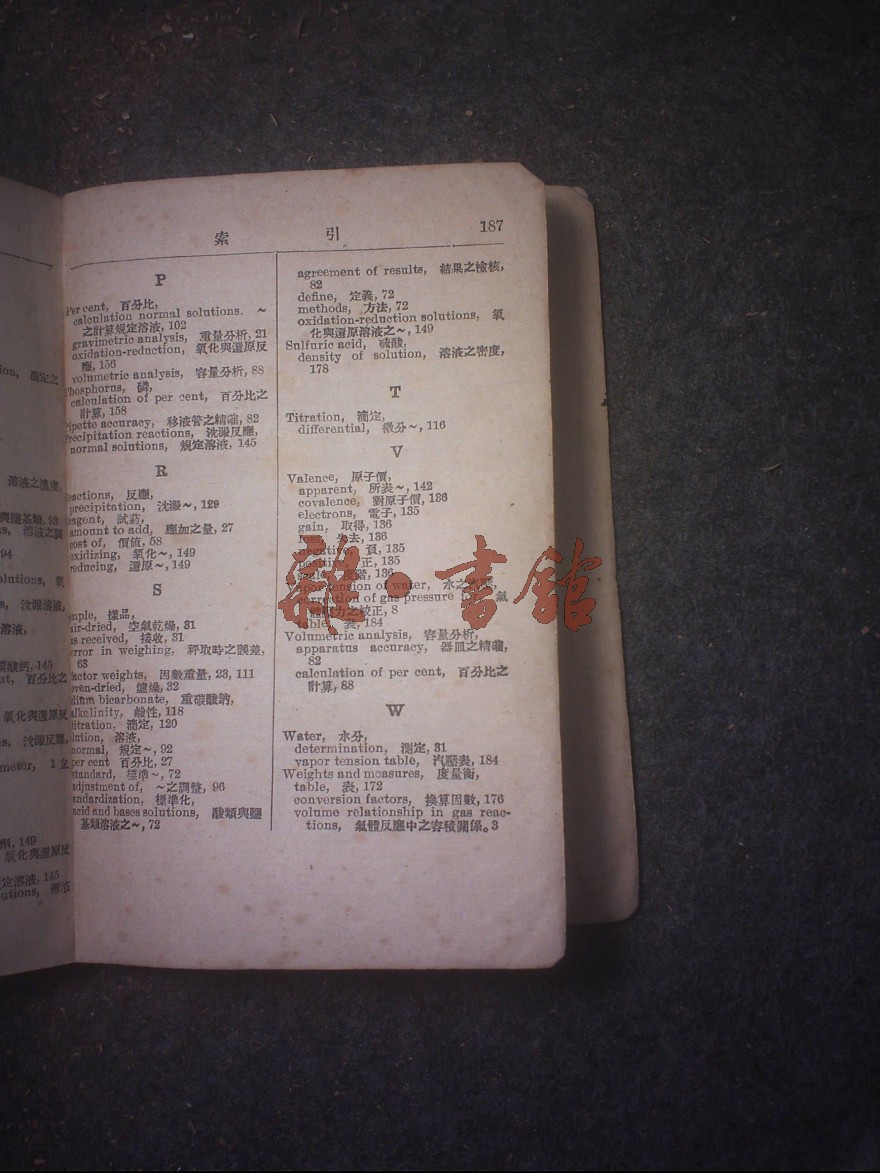 索 引 187
P
Per cent, 百分比,
calculation normal solutions. ～
之計算規定溶液, 102
gravimetric analysis, 重量分析, 21
oxidation-reduction, 氧化與還原反
應, 156
volumetric analysis, 容量分析, 88
Phosphorus, 磷,
calculation of per cent, 百分比之
計算, 158
Pipette accuracy, 移液管之精確, 82
Precipitation reactions, 沈澱反應,
normal solutions, 規定溶液, 145
R
eactions, 反應,
precipitation, 沈澱～, 129
eagent, 試葯,
amount to add, 應加之量, 27
cost of, 價值, 58
oxidizing, 氧化～, 149
reducing, 還原～, 149
S
mple, 樣品,
air-dried, 空氣乾燥, 31
as received, 接收, 31
error in weighing, 秤取時之誤差,
63
factor weights, 因數重量, 23, 111
oven-dried, 爐燥, 32
dium bicarbonate, 重碳酸鈉,
alkalinity, 鹼性, 118
titration, 滴定, 120
lution, 溶液,
normal, 規定～, 92
per cent 百分比, 27
standard, 標準～, 72
adjustment of, ～之調整, 96
andardization, 標準化,
acid and bases solutions, 酸類與鹽
基類溶液之～, 72
agreement of results, 結果之檢核,
82
define, 定義, 72
methods, 方法, 72
oxidation-reduction solutions, 氧
化與還原溶液之～, 149
Sulfuric acid, 硫酸,
density of solution, 溶液之密度,
178
T
Titration, 滴定,
differential, 微分～, 116
V
Valence, 原子價,
apparent, 所表～, 142
covalence, 對原子價, 136
electrons, 電子, 135
gain, 取得, 136
loss, 失去, 136
negative, 負, 135
positive, 正, 135
136
Vapor tension of water, 水之汽壓,
correction of gas pressure for, 氣
之校正, 8
table, 表, 184
Volumetric analysis, 容量分析,
apparatus accuracy, 器皿之精確,
82
calculation of per cent, 百分比之
計算, 88
W
Water, 水分,
determination, 測定, 31
vapor tension table, 汽壓表, 184
Weights and measures, 度量衡,
table, 表, 172
conversion factors, 換算因數, 176
volume relationship in gas reac-
tions, 氣體反應中之容積關係。3
雜·書館